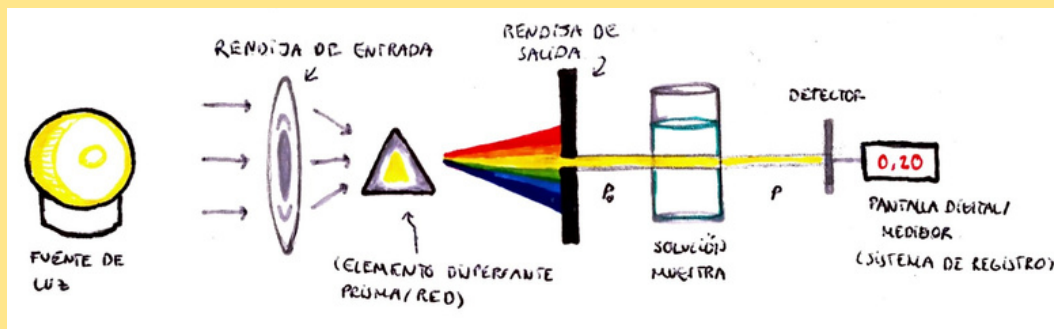 RENDIJA DE ENTRADA
RENDIJA DE
SALIDA
DETECTOR
0,20
P₀
P
FUENTE DE
LUZ
(ELEMENTO DISPERSANTE
PRISMA/RED)
SOLUCIÓN
MUESTRA
PANTALLA DIGITAL/
MEDIDOR
(SISTEMA DE REGISTRO)